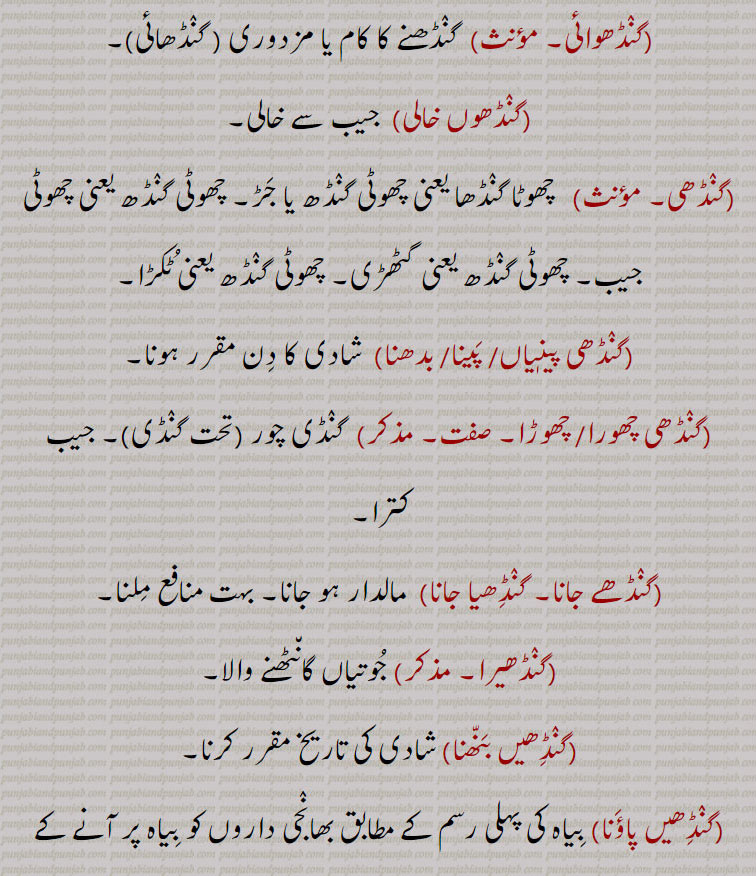 (گنْڈھوائی۔ مؤنث) گنْڈھنے کا کام یا مزدوری (گنْڈھائی)۔
(گنْڈھوں خالی) جیب سے خالی۔
(گنْڈھی۔ مؤنث) چھوٹا گنْڈھا یعنی چھوٹی گنْڈھ یا جَڑ۔ چھوٹی گنْڈھ یعنی چھوٹی
جیب۔ چھوٹی گنْڈھ یعنی گٹھڑی۔ چھوٹی گنْڈھ یعنی ٹُکڑا۔
(گنْڈھی پینیاں/ پَینا/ بدھنا) شادی کا دِن مقرر ہونا۔
(گنْڈھی چھورا/ چھوڑا۔ صفت۔ مذکر) گنْڈی چور (تحت گنْڈی)۔ جیب
کترا۔
(گنْڈھے جانا۔ گنْڈِھیا جانا) مالدار ہو جانا۔ بہت منافع مِلنا۔
(گنْڈھیرا۔ مذکر) جُوتیاں گانٹھنے والا۔
(گنْڈِھیں بَنّھنا) شادی کی تاریخ مقرر کرنا۔
(گنْڈِھیں پاؤَنا) بِیاہ کی پہلی رسم کے مطابق بھانْجی داروں کو بِیاہ پر آنے کے